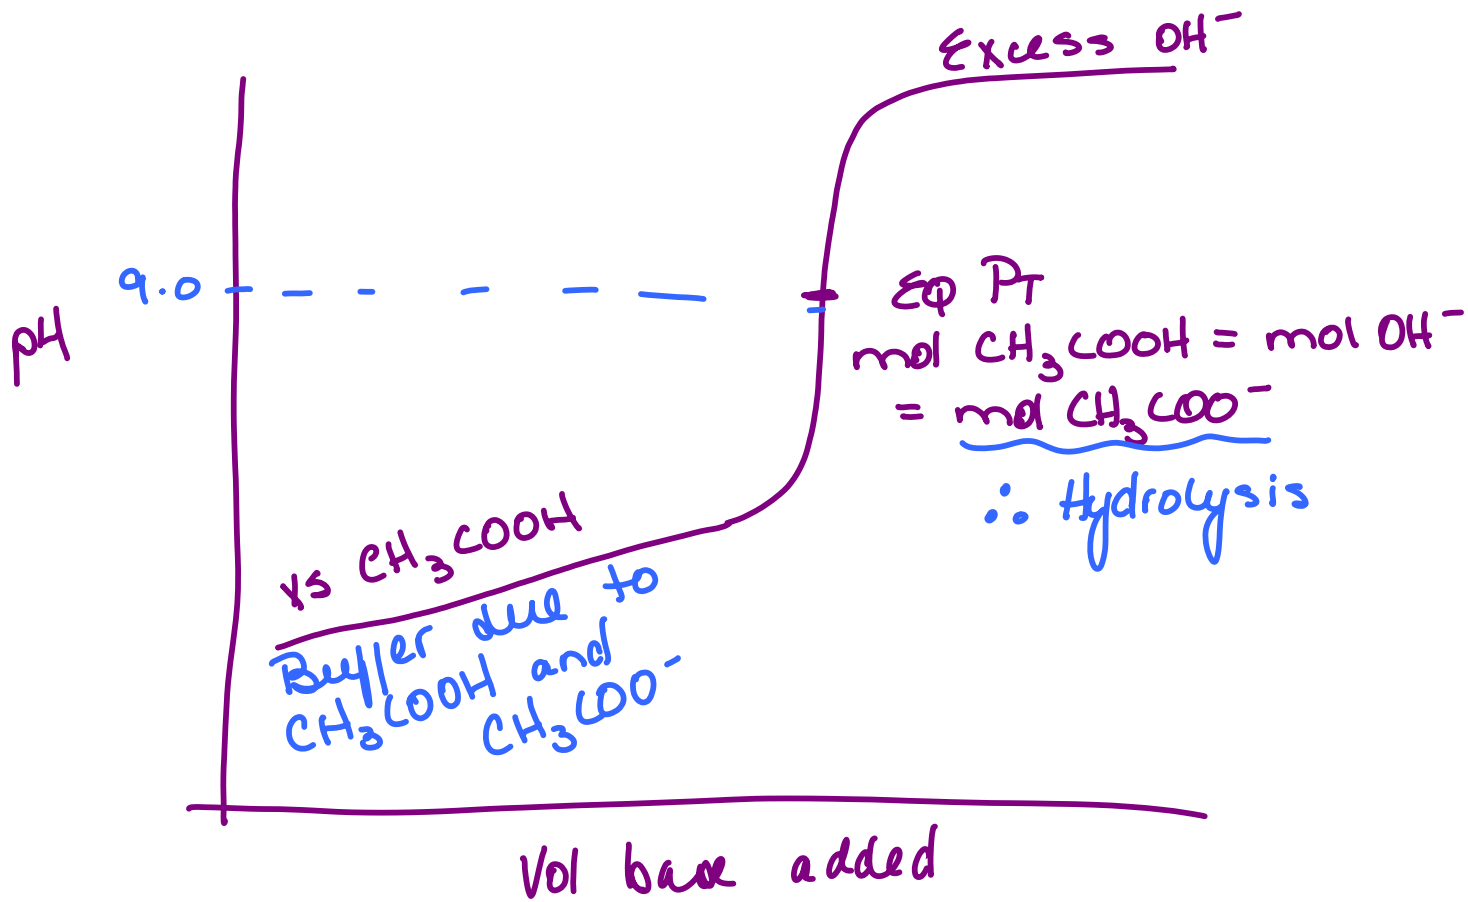 Excess OH⁻
9.0
pH
EQ PT
mol CH₃COOH = mol OH⁻
= mol CH₃COO⁻
∴ Hydrolysis
xs CH₃COOH
Buffer due to
CH₃COOH and
CH₃COO⁻
Vol base added